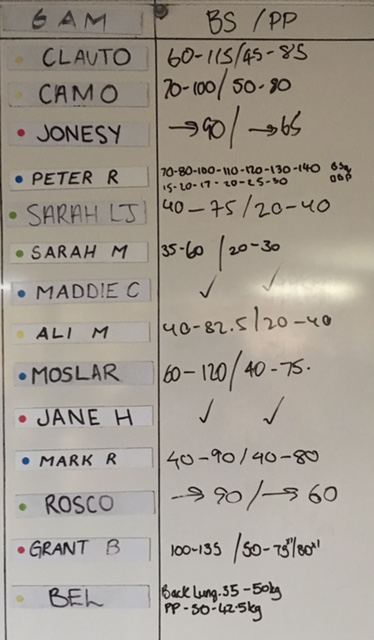 6 AM BS / PP
CLAUTO 60-115/45-85
CAMO 70-100/50-80
JONESY →90/→65
PETER R 70-80-100-110-120-130-140 BSq
15-20-17-20-25-30 DBP
SARAH LJ 40-75/20-40
SARAH M 35-60/20-30
MADDIE C ✓ ✓
ALI M 40-82.5/20-40
MOSLAR 60-120/40-75.
JANE H ✓ ✓
MARK R 40-90/40-80
ROSCO →90/→60
GRANT B 100-135 /50-75x1/80x1
BEL Back Lung. 35-50kg
PP-30-42.5kg